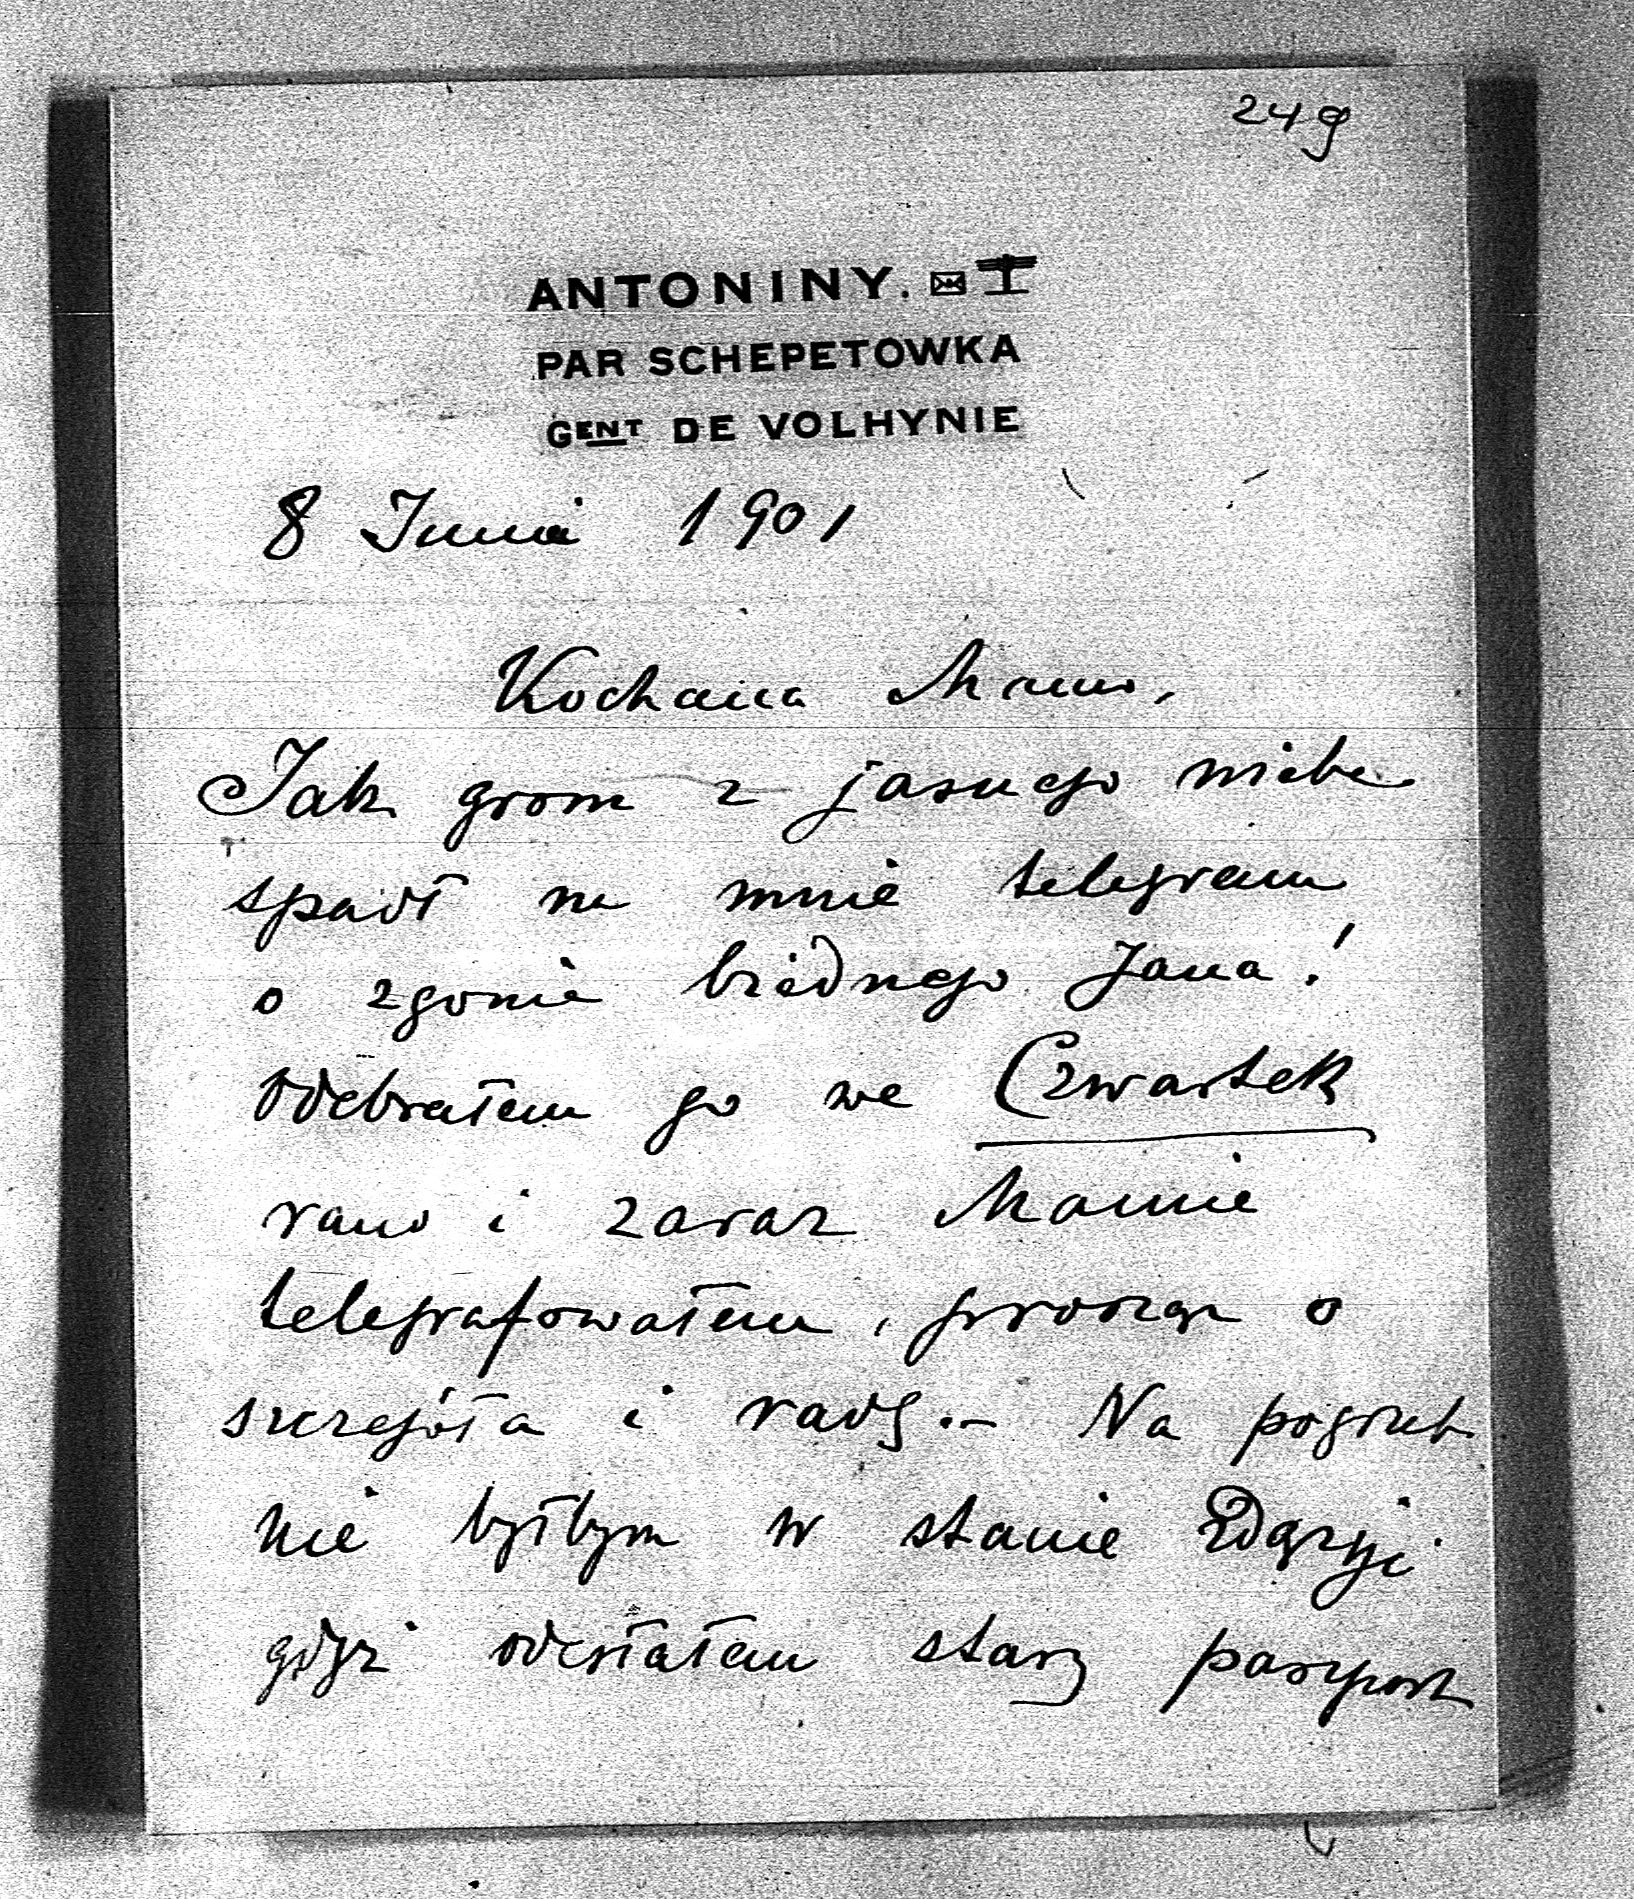 249
ANTONINY.
PAR SCHEPETOWKA
GENT DE VOLHYNIE
8 Junia 1901
Kochana Mamo,
Jak grom z jasnego nieba
spadł na mnie telegram
o zgonie biednego Jana!
Odebrałem go we Czwartek
rano i zaraz Mamie
telegrafowałem, prosząc o
szczegóła i radę.— Na pogrzeb
nie byłbym w stanie zdążyć
gdyż odesłałem stary paszport